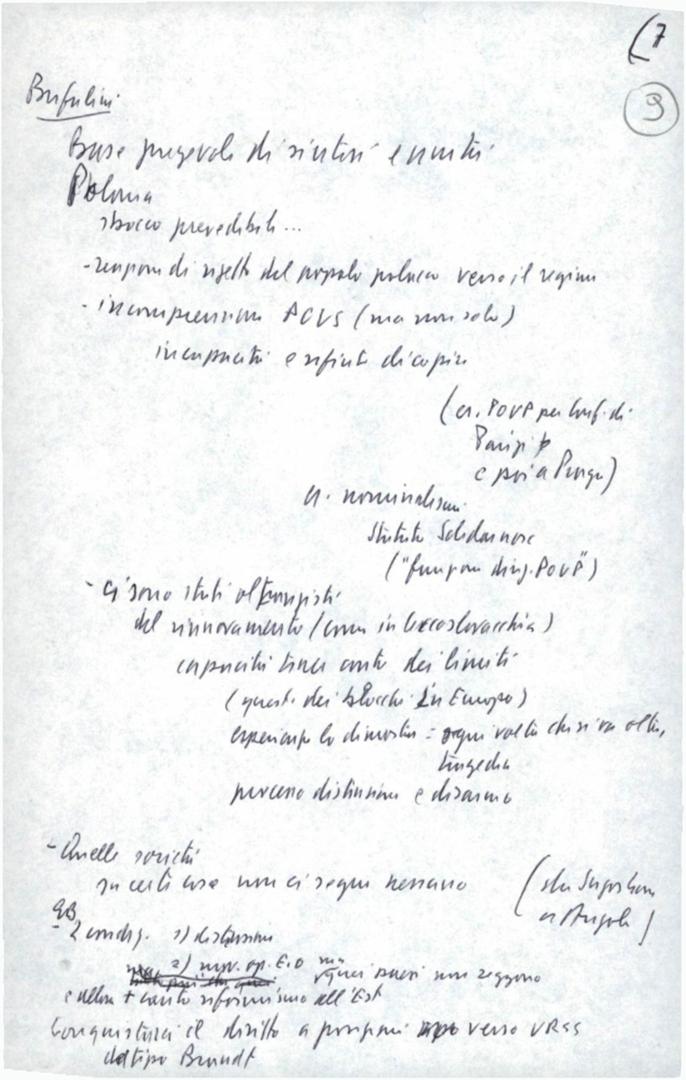 (7
9
Bufalini
Base pregevole di sintesi e unità
Polonia
sbocco prevedibile...
- di rigetto del popolo polacco verso il regime
- incomprensione PCUS (ma non solo)
incapacità e rifiuto di capire
(cr. POUP per Conf. di
Parigi
e poi a Praga)
cr. nominalismi
Statuto Solidarnosc
("funzione dirig. POUP")
- ci sono stati oltranzisti
del rinnovamento (come in Cecoslovacchia)
capacità tener conto dei limiti
(questi dei blocchi in Europa)
esperienza lo dimostra = ogni volta che si va oltre,
tragedia
processo distensione e disarmo
- Quelle società
su certe cose non ci segue nessuno
a Angola)
EB
- 2 condiz. 1) distensione
2) op. E.O ma quei nuovi non reggono
e allora + cauto riformismo all'Est
Conquistarci il diritto a posizioni verso URSS
del tipo Brandt